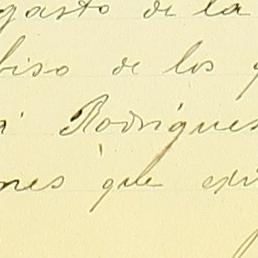 gasto de la
biso de los
Rodrigues
nes que exi